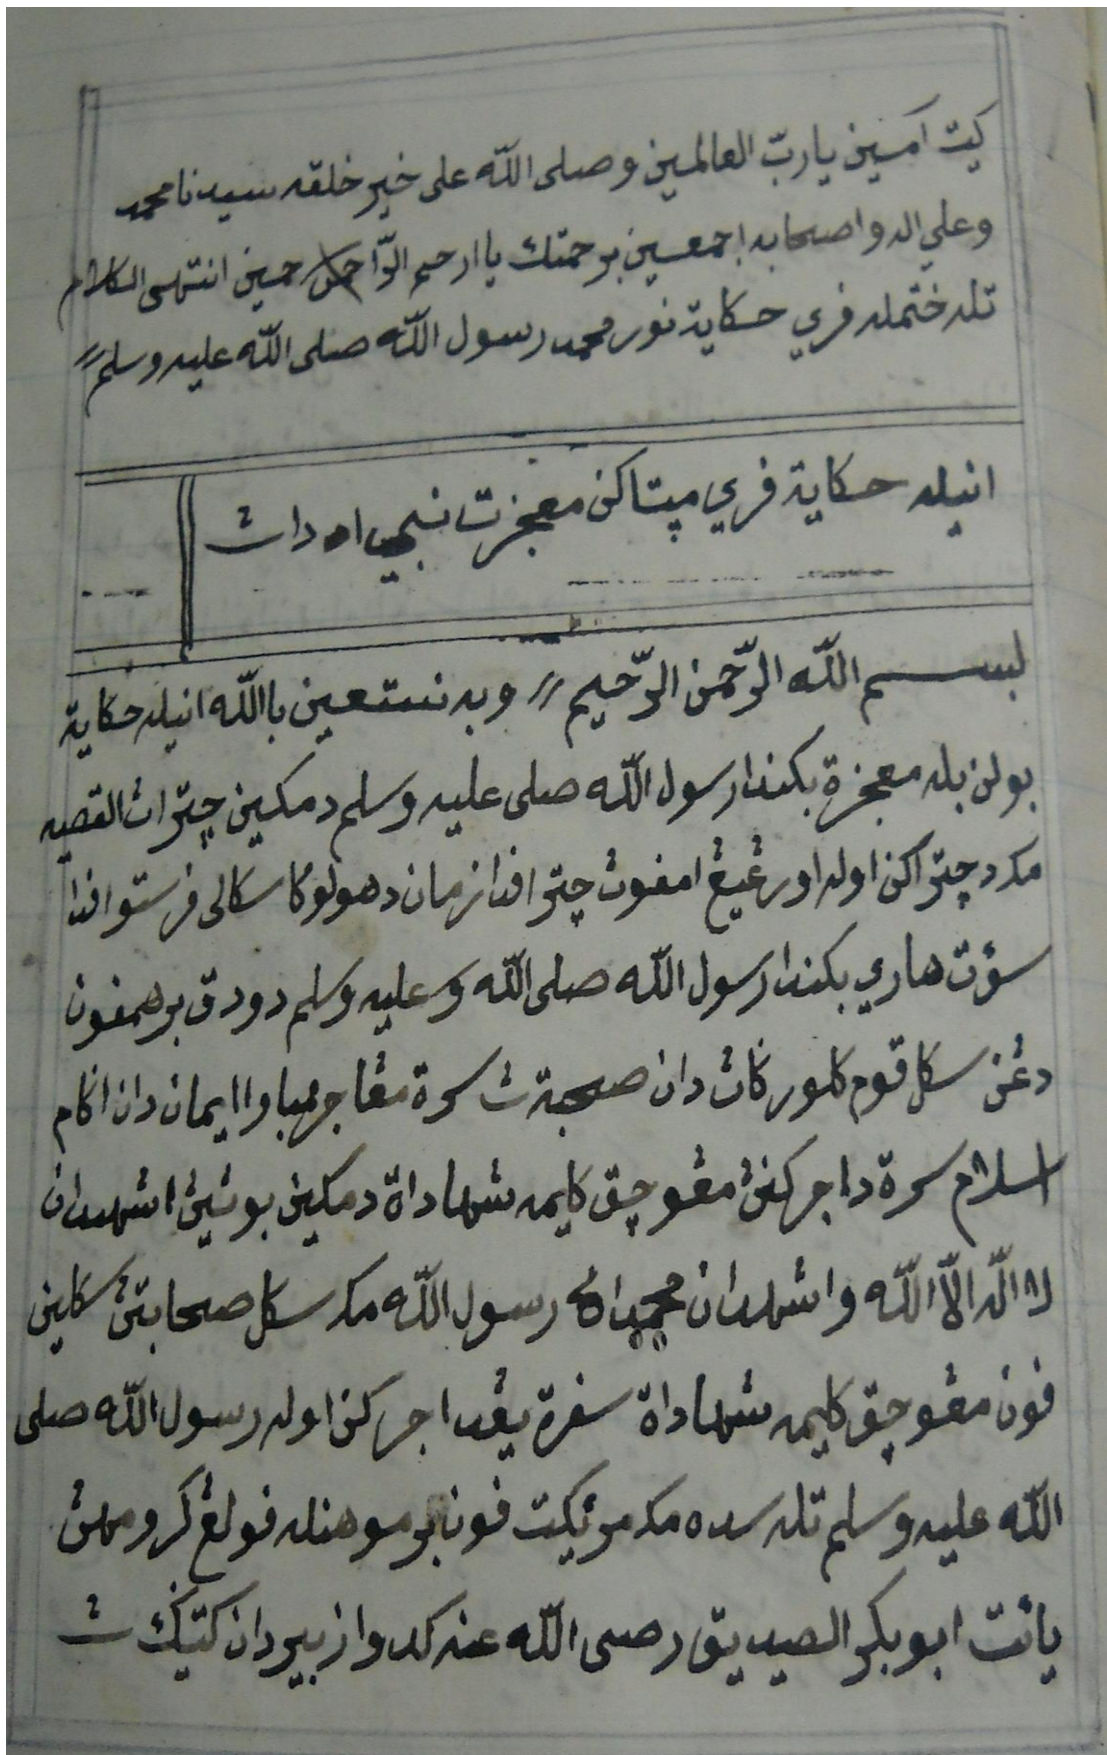 كيت امين يا ربّ العالمين وصلى اللّه على خير خلقه سيدنا محمد
وعلي اله واصحابه اجمعين برحمتك يا ارحم الرّاحمين انتهى الكلام
تله ختمله فري حكاية نور محمد رسول اللّه صلى اللّه عليه وسلم
انيله حكاية فري مپتاكن معجزت نبي
بســـم اللّه الرّحمن الرّحيم // وبه نستعين بااللّه انيله حكاية
بولن بله معجزة بكندا رسول اللّه صلى عليه وسلم دمكين چترات القصيه
مك دچتراكن اوله اورڠيڠ امفوث چترا فدا زمان دهولو كا سكالى فرستوا فدا
سؤت هاري بكندا رسول اللّه صلى اللّه و عليه وسلم دودق برهمفون
دڠن سكل قوم كلورڬاث دان صحبة ث سرة مڠاجر مباوا ايمان دان اڬام
اسلام سرة داجركنث مڠوچق كليمه شهاداة دمكين بوثيث اشهدان
لا الّه الاّ اللّه واشهدان محمدا رسول اللّه مك سكل صحابتث سكلين
فون مڠوچق كليمه شهاداة سفرة يڠداجركن اوله رسول اللّه صلى
اللّه عليه وسلم تله سده مك مريكئت فون برموهنله فولڠ كرومهث
يائت ابو بكر الصيديق رضى اللّه عنه كدوا زبير دان كتيڬ ث